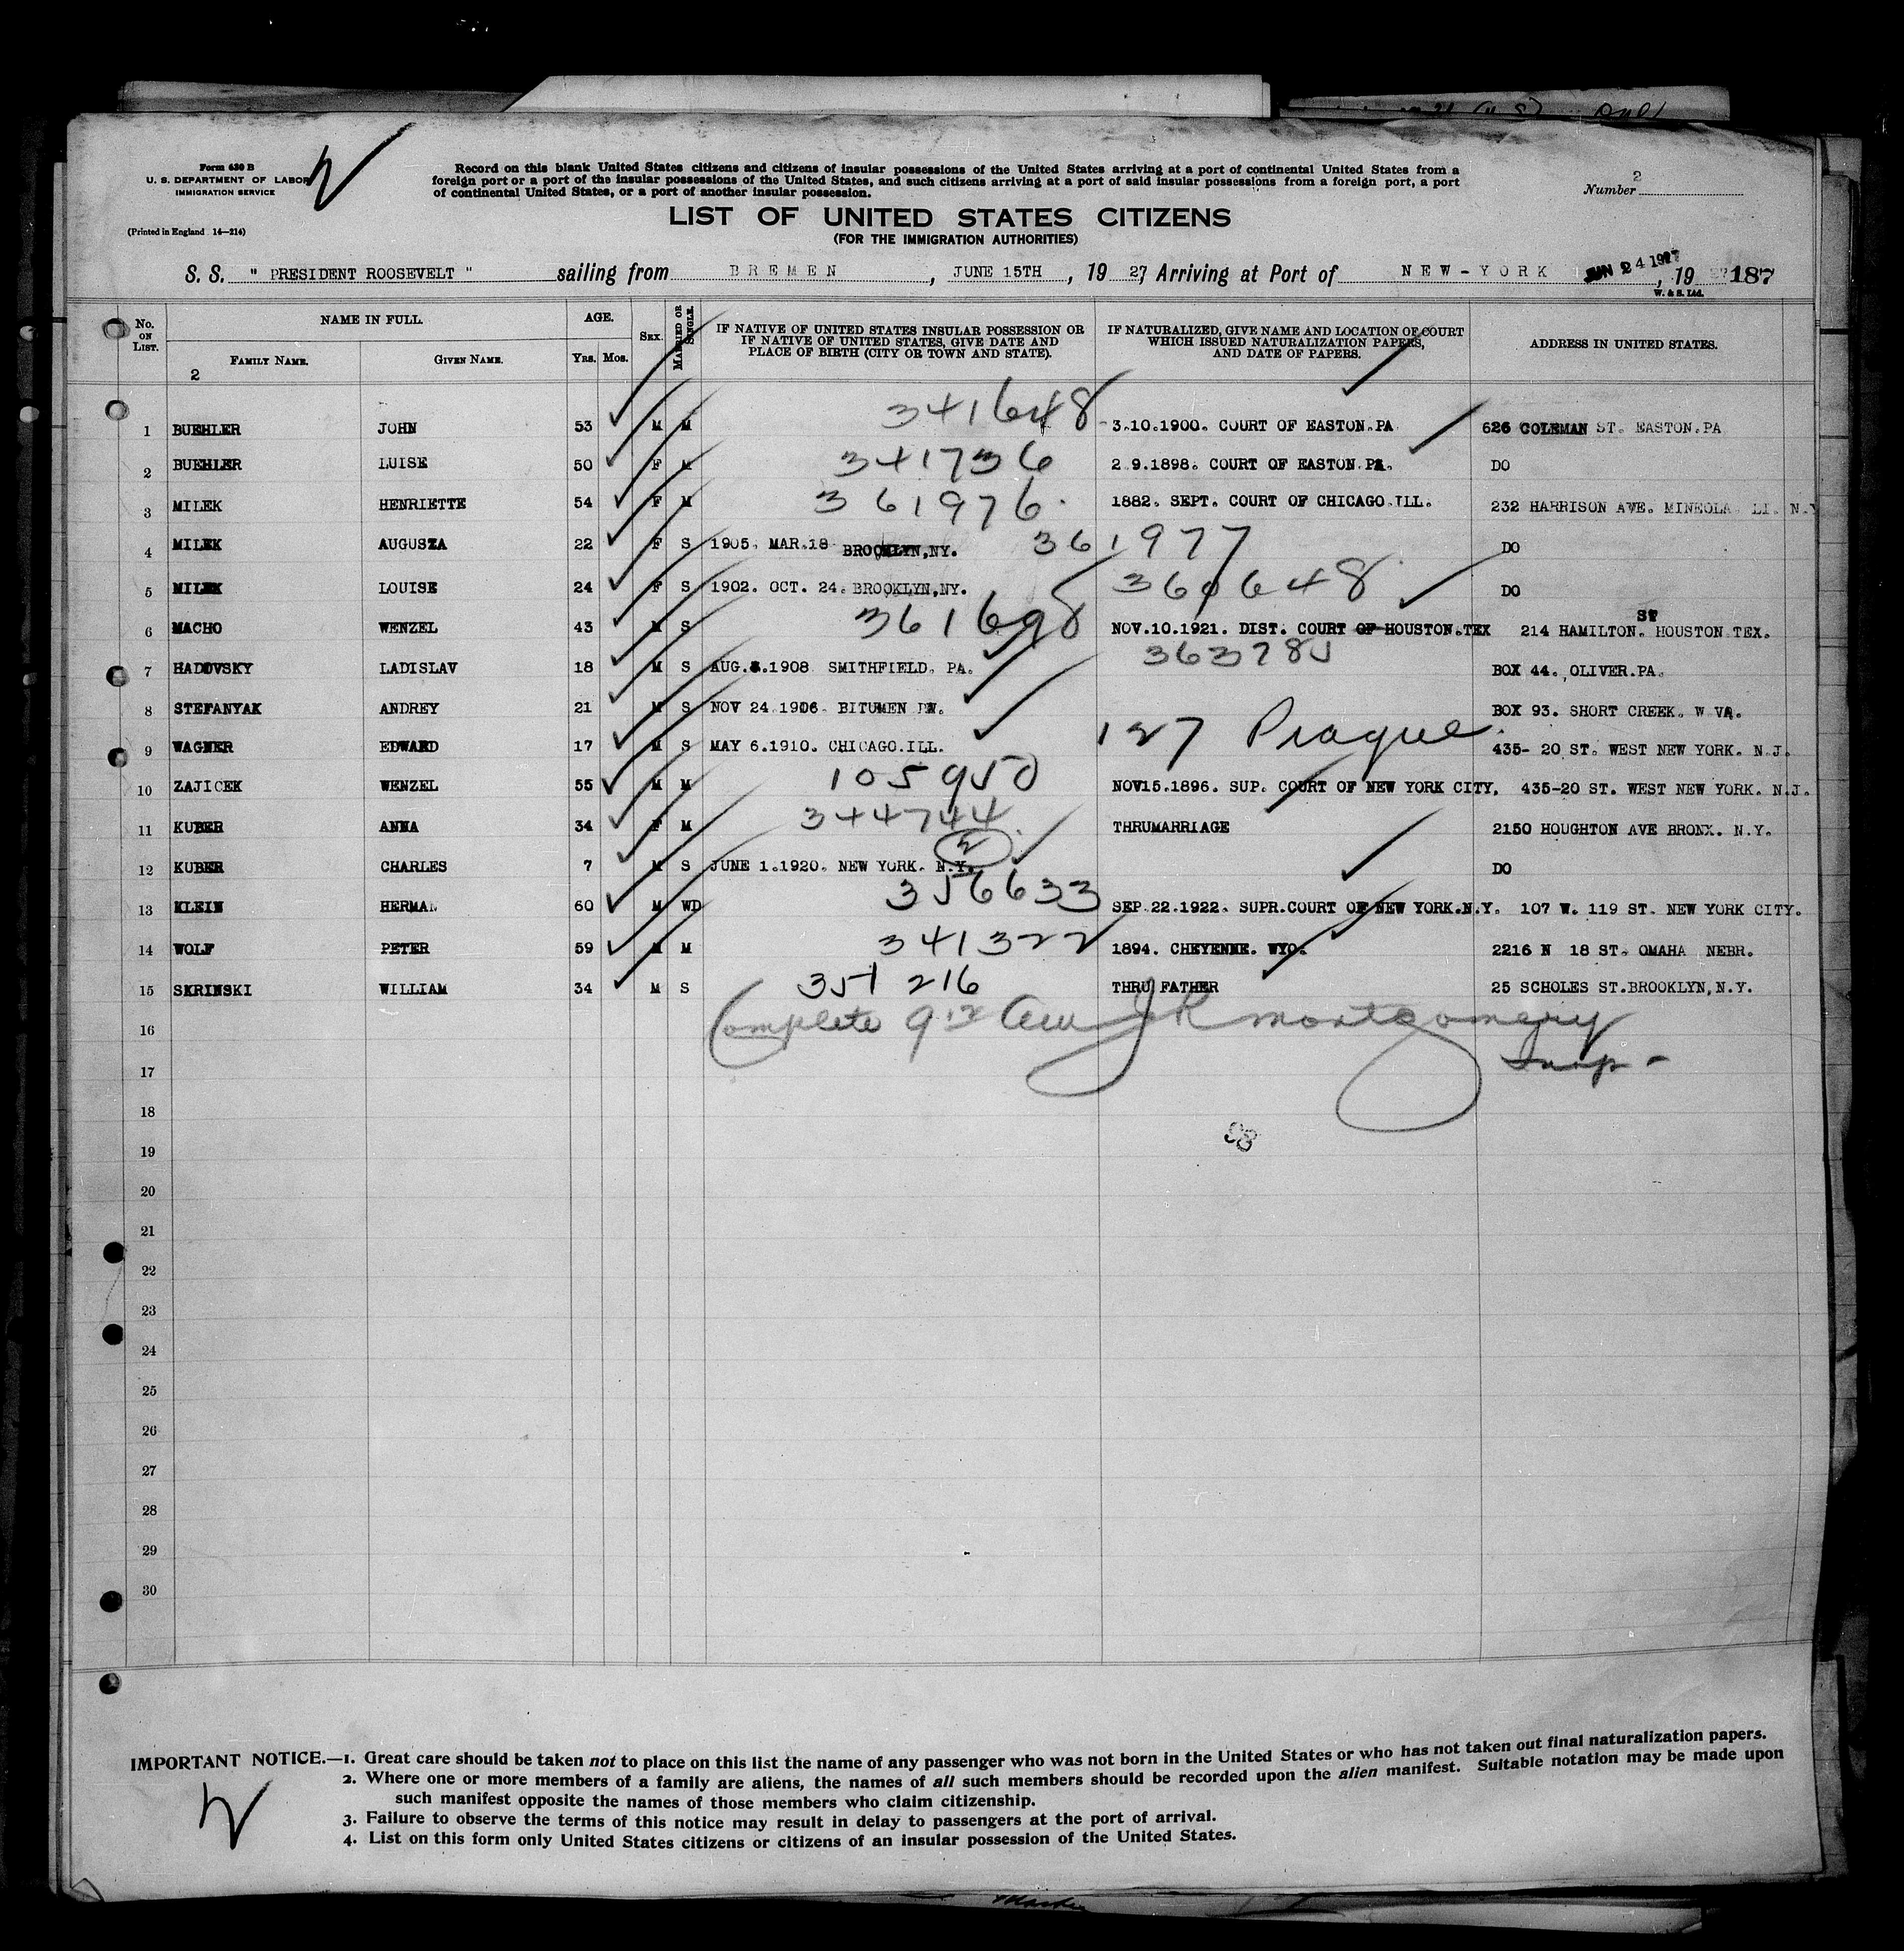 Form 630 B
U. S. DEPARTMENT OF LABOR
IMMIGRATION SERVICE
(Printed in England 14—214)
Record on this blank United States citizens and citizens of insular possessions of the United States arriving at a port of continental United States from a
foreign port or a port of the insular possessions of the United States, and such citizens arriving at a port of said insular possessions from a foreign port, a port
of continental United States, or a port of another insular possession.
Number 2
LIST OF UNITED STATES CITIZENS
(FOR THE IMMIGRATION AUTHORITIES)
S. S. " PRESIDENT ROOSEVELT " sailing from BREMEN, JUNE 15TH, 19 27, Arriving at Port of NEW-YORK JUN 24 1927, 19 27 187
W. & S. Ltd.
No. ON LIST.
NAME IN FULL.
FAMILY NAME.
GIVEN NAME.
AGE.
YRS. MOS.
SEX.
MARRIED OR SINGLE.
IF NATIVE OF UNITED STATES INSULAR POSSESSION OR
IF NATIVE OF UNITED STATES, GIVE DATE AND
PLACE OF BIRTH (CITY OR TOWN AND STATE).
IF NATURALIZED, GIVE NAME AND LOCATION OF COURT
WHICH ISSUED NATURALIZATION PAPERS,
AND DATE OF PAPERS.
ADDRESS IN UNITED STATES.
2
1 BUEHLER JOHN 53 M M 341648 3.10.1900. COURT OF EASTON.PA 626 COLEMAN ST. EASTON.PA
2 BUEHLER LUISE 50 F M 341736 2 9.1898. COURT OF EASTON.PA. DO
3 MILEK HENRIETTE 54 F M 361976. 1882. SEPT. COURT OF CHICAGO.ILL. 232 HARRISON AVE. MINEOLA. LI. N.Y
4 MILEK AUGUSZA 22 F S 1905. MAR.18 BROOKLYN,NY. 361977 DO
5 MILEK LOUISE 24 F S 1902. OCT. 24. BROOKLYN,NY. 360648 DO
6 MACHO WENZEL 43 M S 361698 NOV.10.1921. DIST. COURT OF HOUSTON.TEX 214 HAMILTON. ST HOUSTON TEX.
7 HADOVSKY LADISLAV 18 M S AUG.8.1908 SMITHFIELD. PA. 363785 BOX 44. OLIVER.PA.
8 STEFANYAK ANDREY 21 M S NOV 24.1906. BITUMEN PA. BOX 93. SHORT CREEK. W VA.
9 WAGNER EDWARD 17 M S MAY 6.1910. CHICAGO.ILL. 127 Prague. 435- 20 ST. WEST NEW YORK. N.J.
10 ZAJICEK WENZEL 55 M M 105950 NOV15.1896. SUP. COURT OF NEW YORK CITY. 435-20 ST. WEST NEW YORK. N.J.
11 KUBER ANNA 34 F M 344744. THRUMARRIAGE 2150 HOUGHTON AVE BRONX. N.Y.
12 KUBER CHARLES 7 M S JUNE 1.1920. NEW YORK. N.Y. DO
13 KLEIN HERMAN 60 M WD 356633 SEP.22.1922. SUPR.COURT OF NEW YORK.N.Y. 107 W. 119 ST. NEW YORK CITY.
14 WOLF PETER 59 M M 341322 1894. CHEYENNE. WYO. 2216 N 18 ST. OMAHA NEBR.
15 SKRINSKI WILLIAM 34 M S 351216 THRU FATHER 25 SCHOLES ST.BROOKLYN,N.Y.
16 Complete JR Montgomery
17 Insp-
18
19 98
20
21
22
23
24
25
26
27
28
29
30
IMPORTANT NOTICE.—1. Great care should be taken not to place on this list the name of any passenger who was not born in the United States or who has not taken out final naturalization papers.
2. Where one or more members of a family are aliens, the names of all such members should be recorded upon the alien manifest. Suitable notation may be made upon
such manifest opposite the names of those members who claim citizenship.
3. Failure to observe the terms of this notice may result in delay to passengers at the port of arrival.
4. List on this form only United States citizens or citizens of an insular possession of the United States.